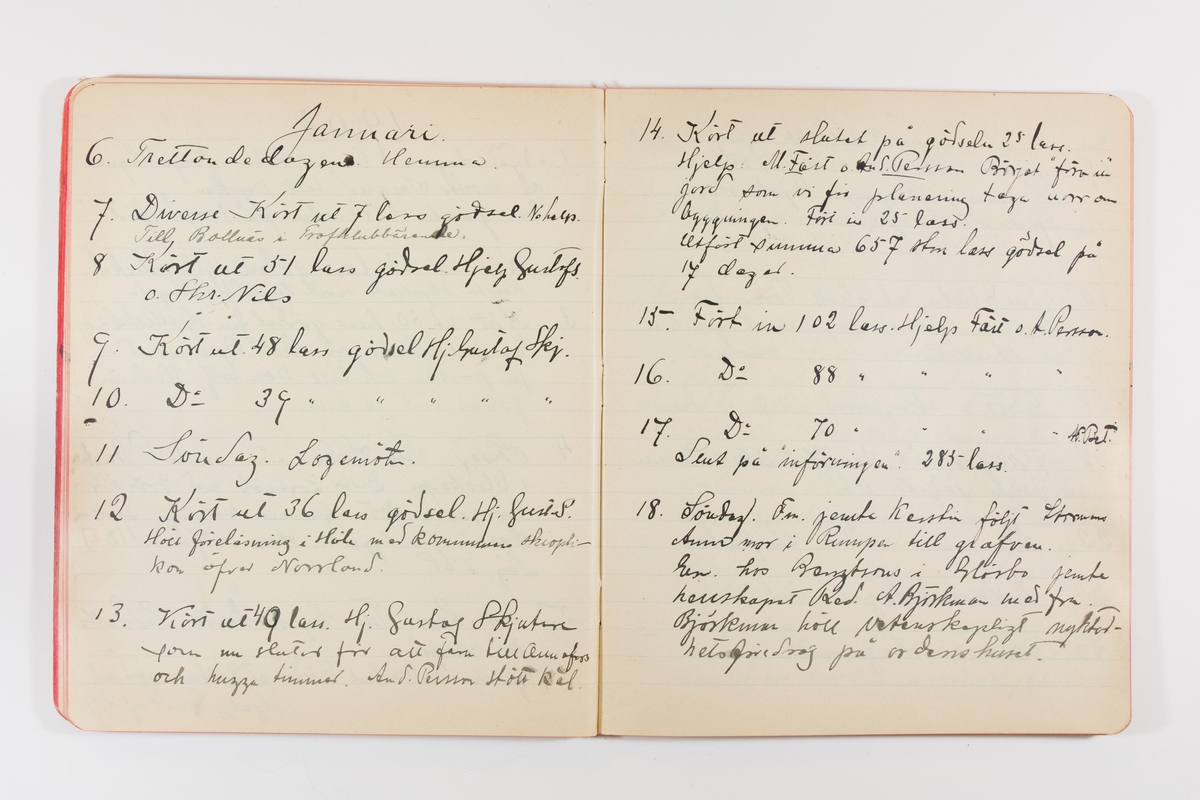 Januari.
6. Trettondedagen. Hemma
7. Diverse Kört ut 7 lass gödsel.
Till Bollnäs i
8 Kört ut 51 lass gödsel. Hjelp Gustafs.
o. Skr. Nils
9. Kört ut 48 lass gödsel Hj. Gustaf Skj.
10. Do 39 " " " " "
11 Söndag. Logemöte.
12 Kört ut 36 lass gödsel. Hj. Gust. S.
Höll föreläsning i Höle med kommunens skiopti-
kon öfver Norrland.
13. Kört ut 49 lass. Hj. Gustaf Skjutare
som nu slutar för att fara till Annefors
och hugga timmer. And. Persson stött käl.
14. Kört ut slutet på gödseln 25 lass.
Hjelp: M. Fäst o. And. Persson Börjat "föra in"
jord som vi fis planering taga norr om
byggningen. Fört in 25 lass.
Utfört summa 657 stm lass gödsel på
17 dagar.
15. Fört in 102 lass. Hjelp Fäst o. A. Persson.
16. Do 88 " " " "
17. Do 70 " " " "
Slut på "införningen". 285 lass.
18. Söndag. Fm. jemte Kerstin följt
Anna mor i Rumpen till grafven.
Em. hos Bengtsons i Glösbo jemte
herrskapet Red. A. Björkman med fru.
Björkman höll vetenskapligt nykter-
hetsföredrag på ordenshuset.